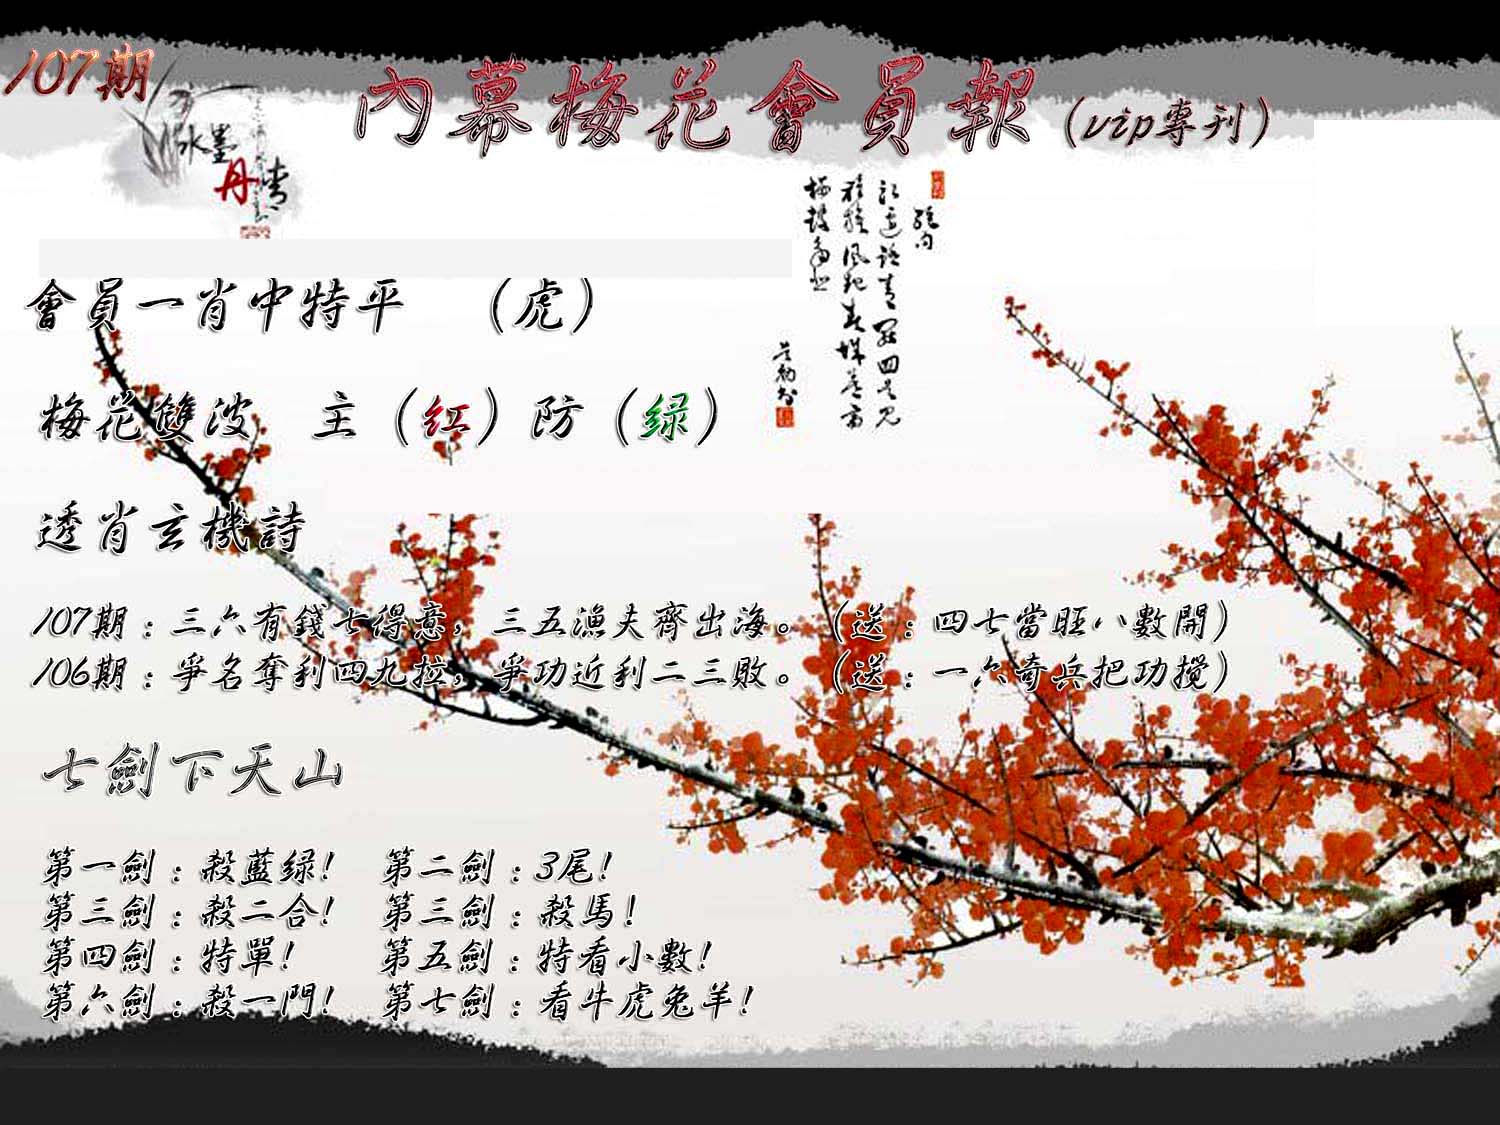 107期
內幕梅花會員報(vip專刊)
水墨
丹情
絕句
會員一肖中特平 (虎)
梅花雙波 主(红)防(绿)
透肖玄機詩
107期:三六有錢七得意,三五漁夫齊出海。(送:四七當旺八數開)
106期:爭名奪利四九拉,爭功近利二三敗。(送:一六奇兵把功攪)
七劍下天山
第一劍:殺藍绿! 第二劍:3尾!
第三劍:殺二合! 第三劍:殺馬!
第四劍:特單! 第五劍:特看小數!
第六劍:殺一門! 第七劍:看牛虎兔羊!